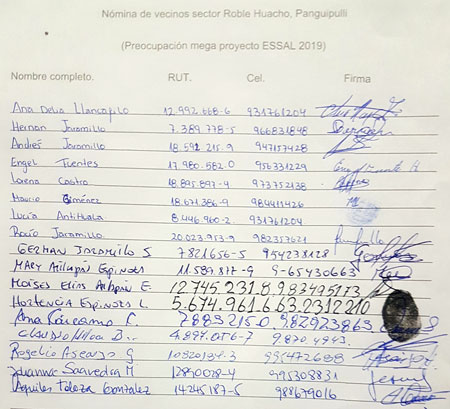 Nómina de vecinos sector Roble Huacho, Panguipulli
(Preocupación mega proyecto ESSAL 2019)
Nombre completo. RUT. Cel. Firma
Ana Delia Llancapilo 12.992.668-6 931761204
Hernan Jaramillo 7.389.778-5 966831848
Andrés Jaramillo 18.592.215-9 947157428
Engel Fuentes 17.980.582.0 956331229
Lorena Castro 18.895.897-4 973752138
Mauro Giménez 18.671.386-9 984411426
Lucía Antihuala 8.446.960-2. 931761204
Rocío Jaramillo 20.023.953-9 982357621
GERMAN JARAMILLO S 7821656-5 954238128
MARY Aillapán Espinoza 11.589.817-9 9-65430663
Moises Elias Aillapán E 12.745.231.8 983495173
Hortencia Espinoza L 5.674.961.6 632312210
Ana Cárcamo F. 7883215-0. 982923865
Claudio Ulloa B.. 4.897.076-7 9.870.4943.
Rogelio Asenjo G 10320134-3 991472688
Juanna Saavedra M 12840028-4 995308831
Aquiles Toloza Gonzalez 14245187-5 988679016